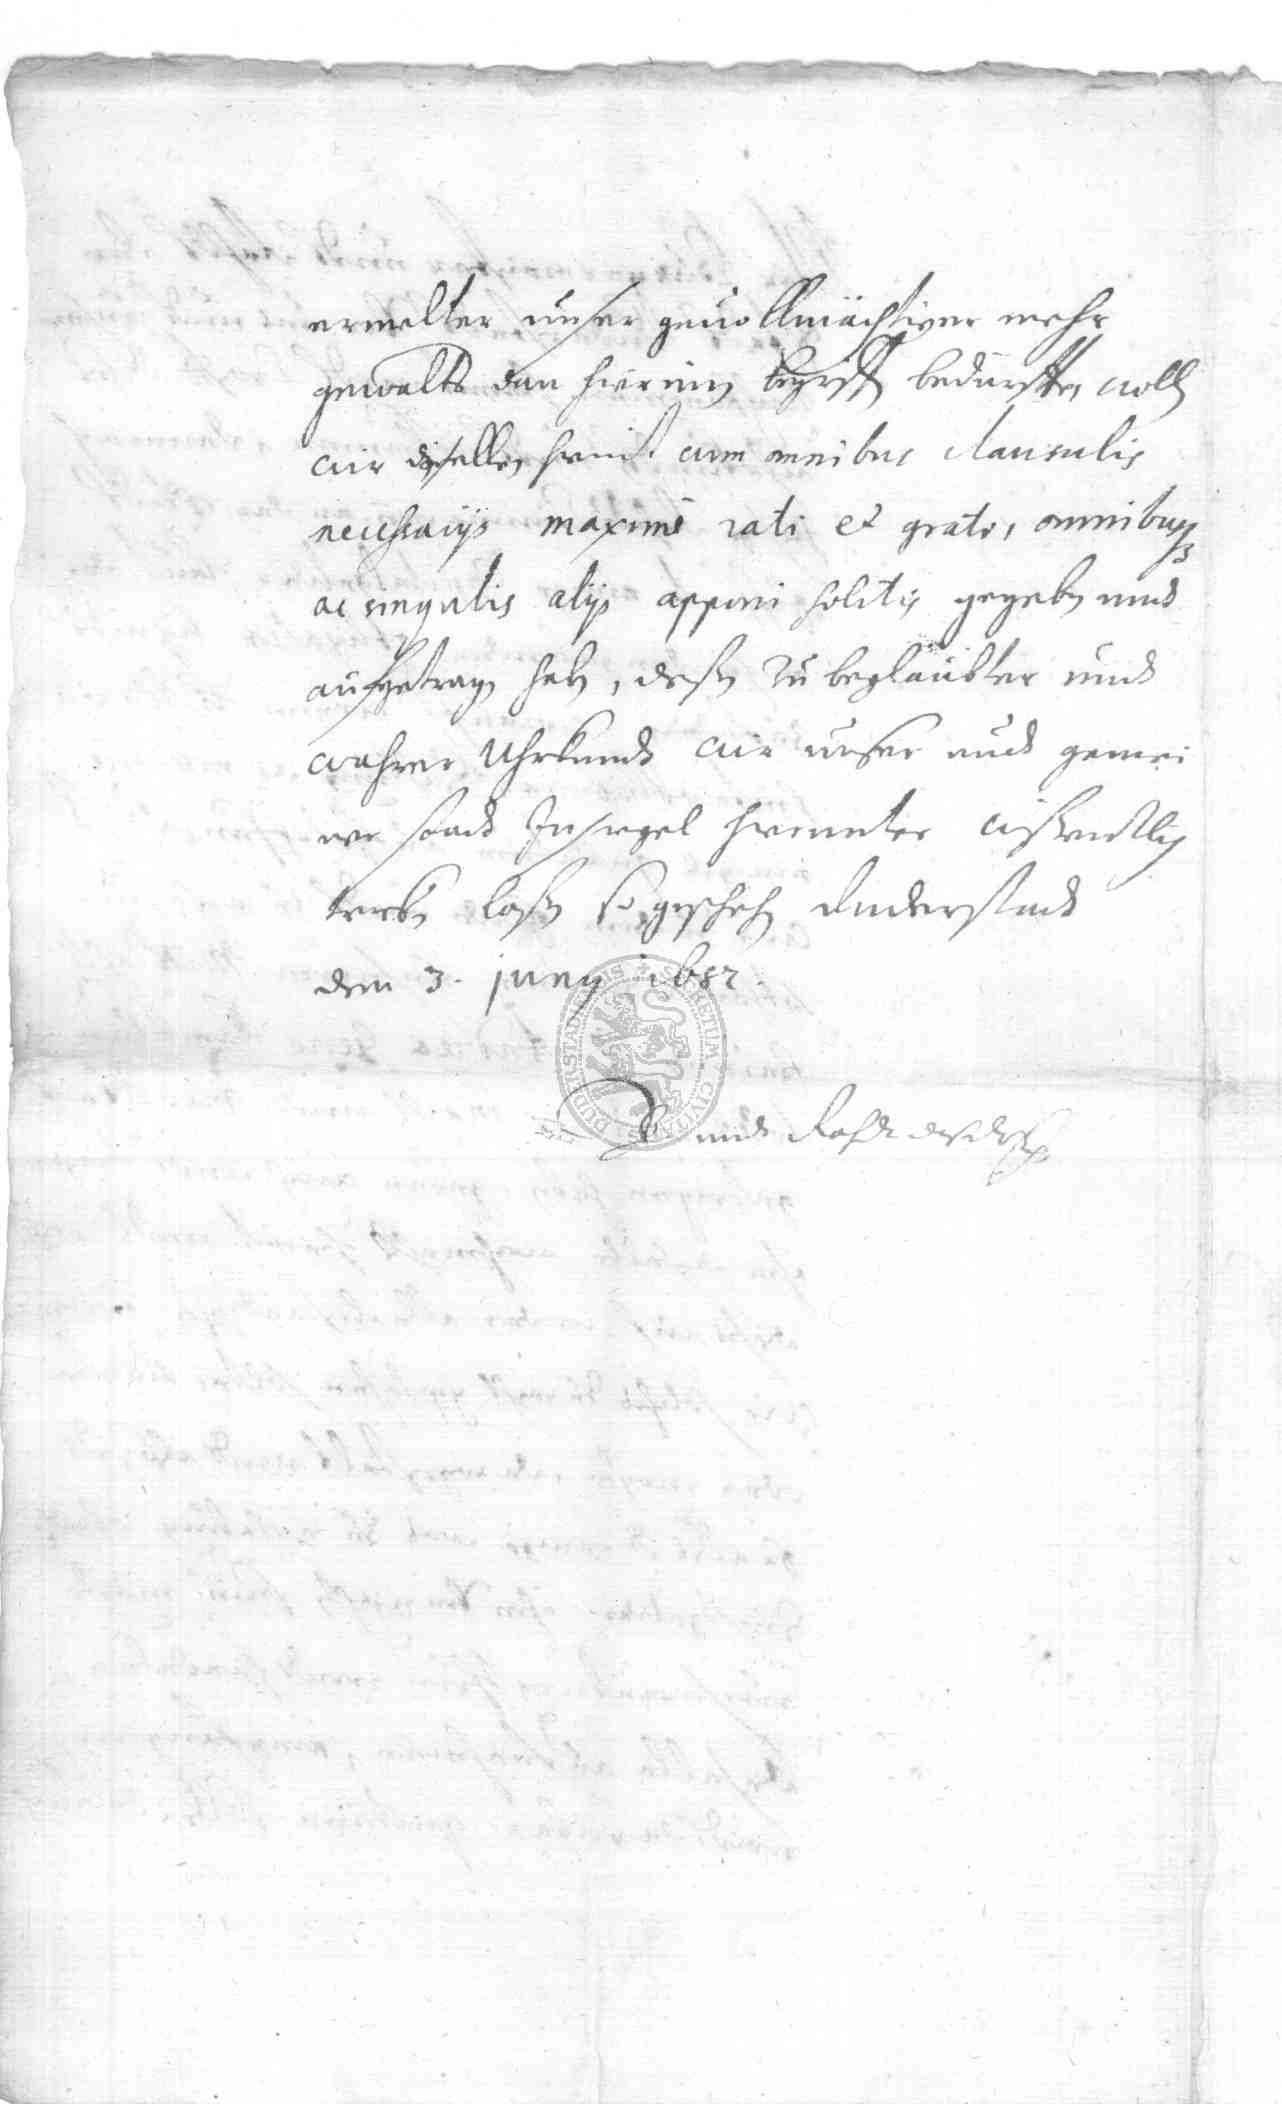 ermelter unser gevollmächtiger mehr
gewalts dan hierinn begriff bedurffte, woll
wir dieselbe hemit cum omnibus clausulis
necessarijs maximè rati et grati, omnibusq
ac singulis alijs apponi solitis gegeben undt
aufgetragen haben, deßen zu beglaubter undt
wahrer Uhrkundt wir unser undt gemei
ner Stadt Insiegel hierunter wißentlich
trucken laßen so geschehen Duderstadt
den 3. Juny 1652.
undt Rath daselbst
SECRETUM CIVITATIS DUDERSTADENSIS